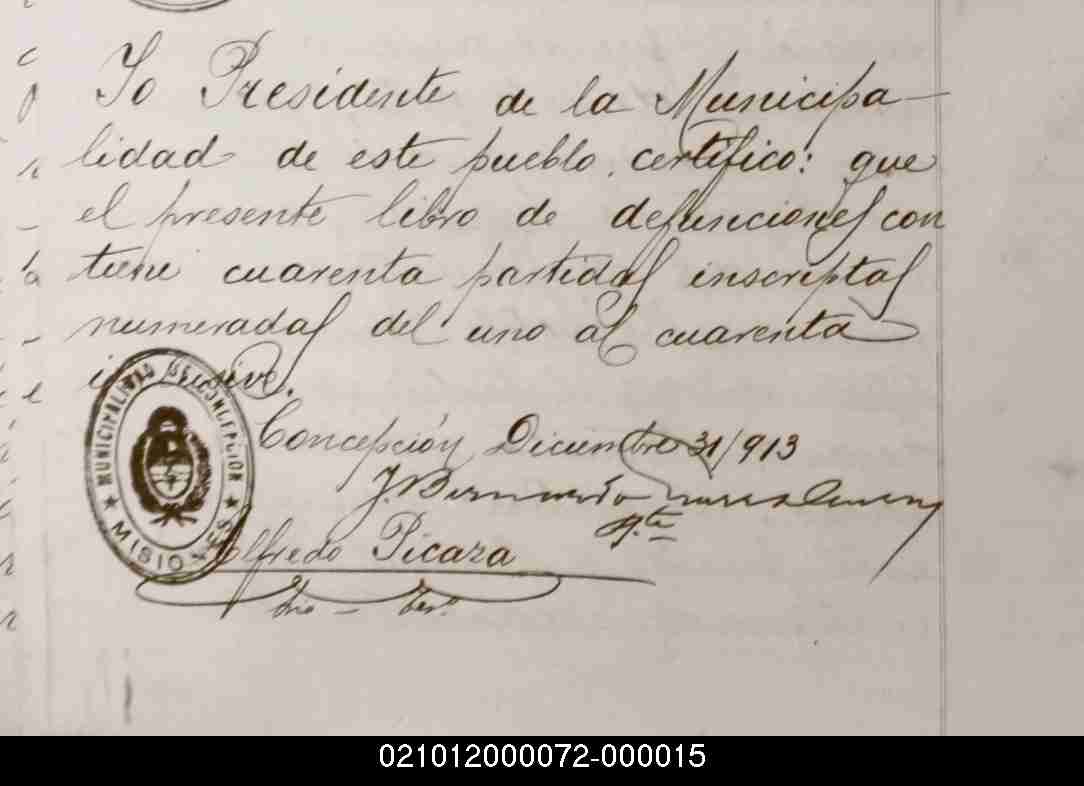 Yo Presidente de la Municipa-
lidad de este pueblo, certifico: que
el presente libro de defunciones con
tiene cuarenta partidas inscriptas
numeradas del uno al cuarenta
inclusive.
Concepción Diciembre 31/913
J. Bernardo
Pte
Alfredo Picaza
Srio - Tesº
MUNICIPALIDAD DE CONCEPCION
★ MISIONES ★
021012000072-000015